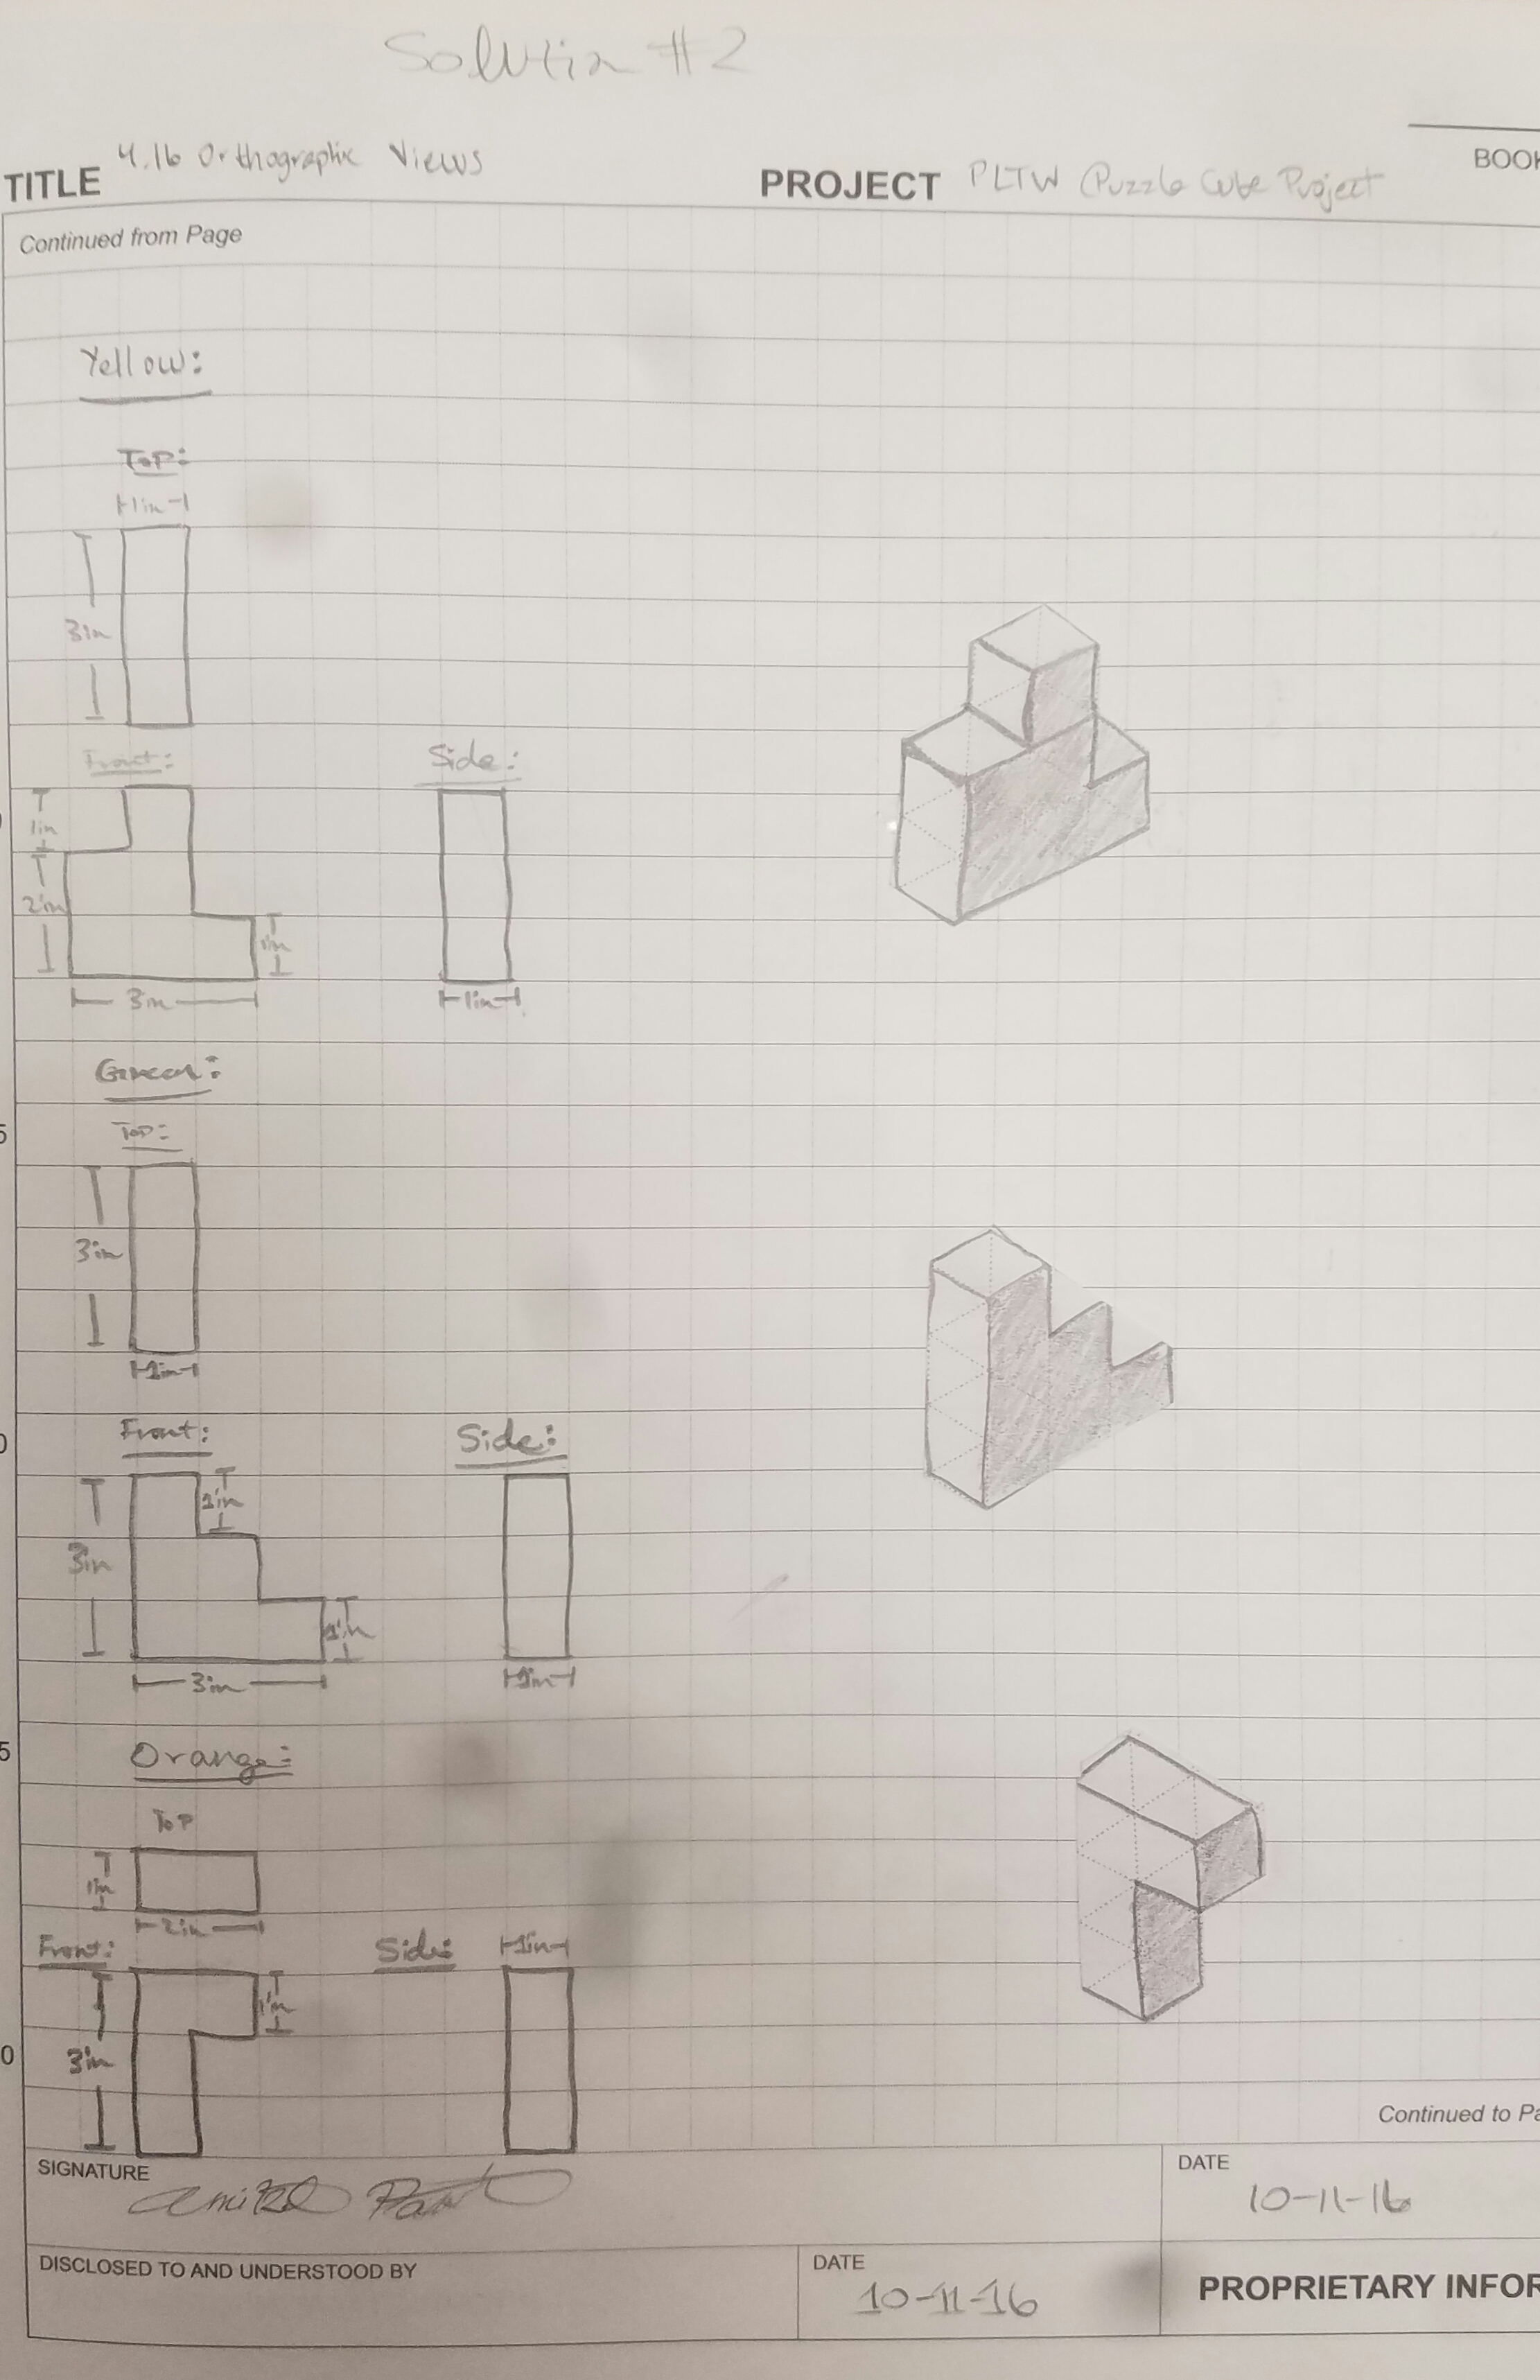 Solution #2
BOOK
TITLE 4.1b Orthographic Views PROJECT PLTW Puzzle Cube Project
Continued from Page
Yellow:
Top:
1in
3in
Front: Side:
1in
2in 1in
3in 1in
Green:
Top:
3in
1in
Front: Side:
1in
3in
1in
3in 1in
Orange:
Top
1in
2in
Front: Side: 1in
1in
3in
Continued to Pa
SIGNATURE DATE
10-11-16
DISCLOSED TO AND UNDERSTOOD BY DATE PROPRIETARY INFOR
10-11-16